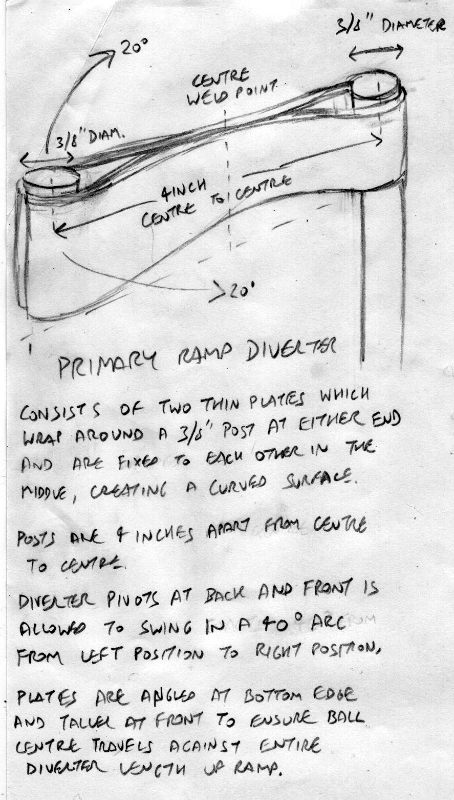 3/8" DIAMETER
20°
CENTRE
WELD POINT
3/8" DIAM.
4 INCH
CENTRE TO CENTRE
20°
PRIMARY RAMP DIVERTER
CONSISTS OF TWO THIN PLATES WHICH
WRAP AROUND A 3/8" POST AT EITHER END
AND ARE FIXED TO EACH OTHER IN THE
MIDDLE, CREATING A CURVED SURFACE.
POSTS ARE 4 INCHES APART FROM CENTRE
TO CENTRE.
DIVERTER PIVOTS AT BACK AND FRONT IS
ALLOWED TO SWING IN A 40° ARC
FROM LEFT POSITION TO RIGHT POSITION.
PLATES ARE ANGLED AT BOTTOM EDGE
AND TALLER AT FRONT TO ENSURE BALL
CENTRE TRAVELS AGAINST ENTIRE
DIVERTER LENGTH UP RAMP.